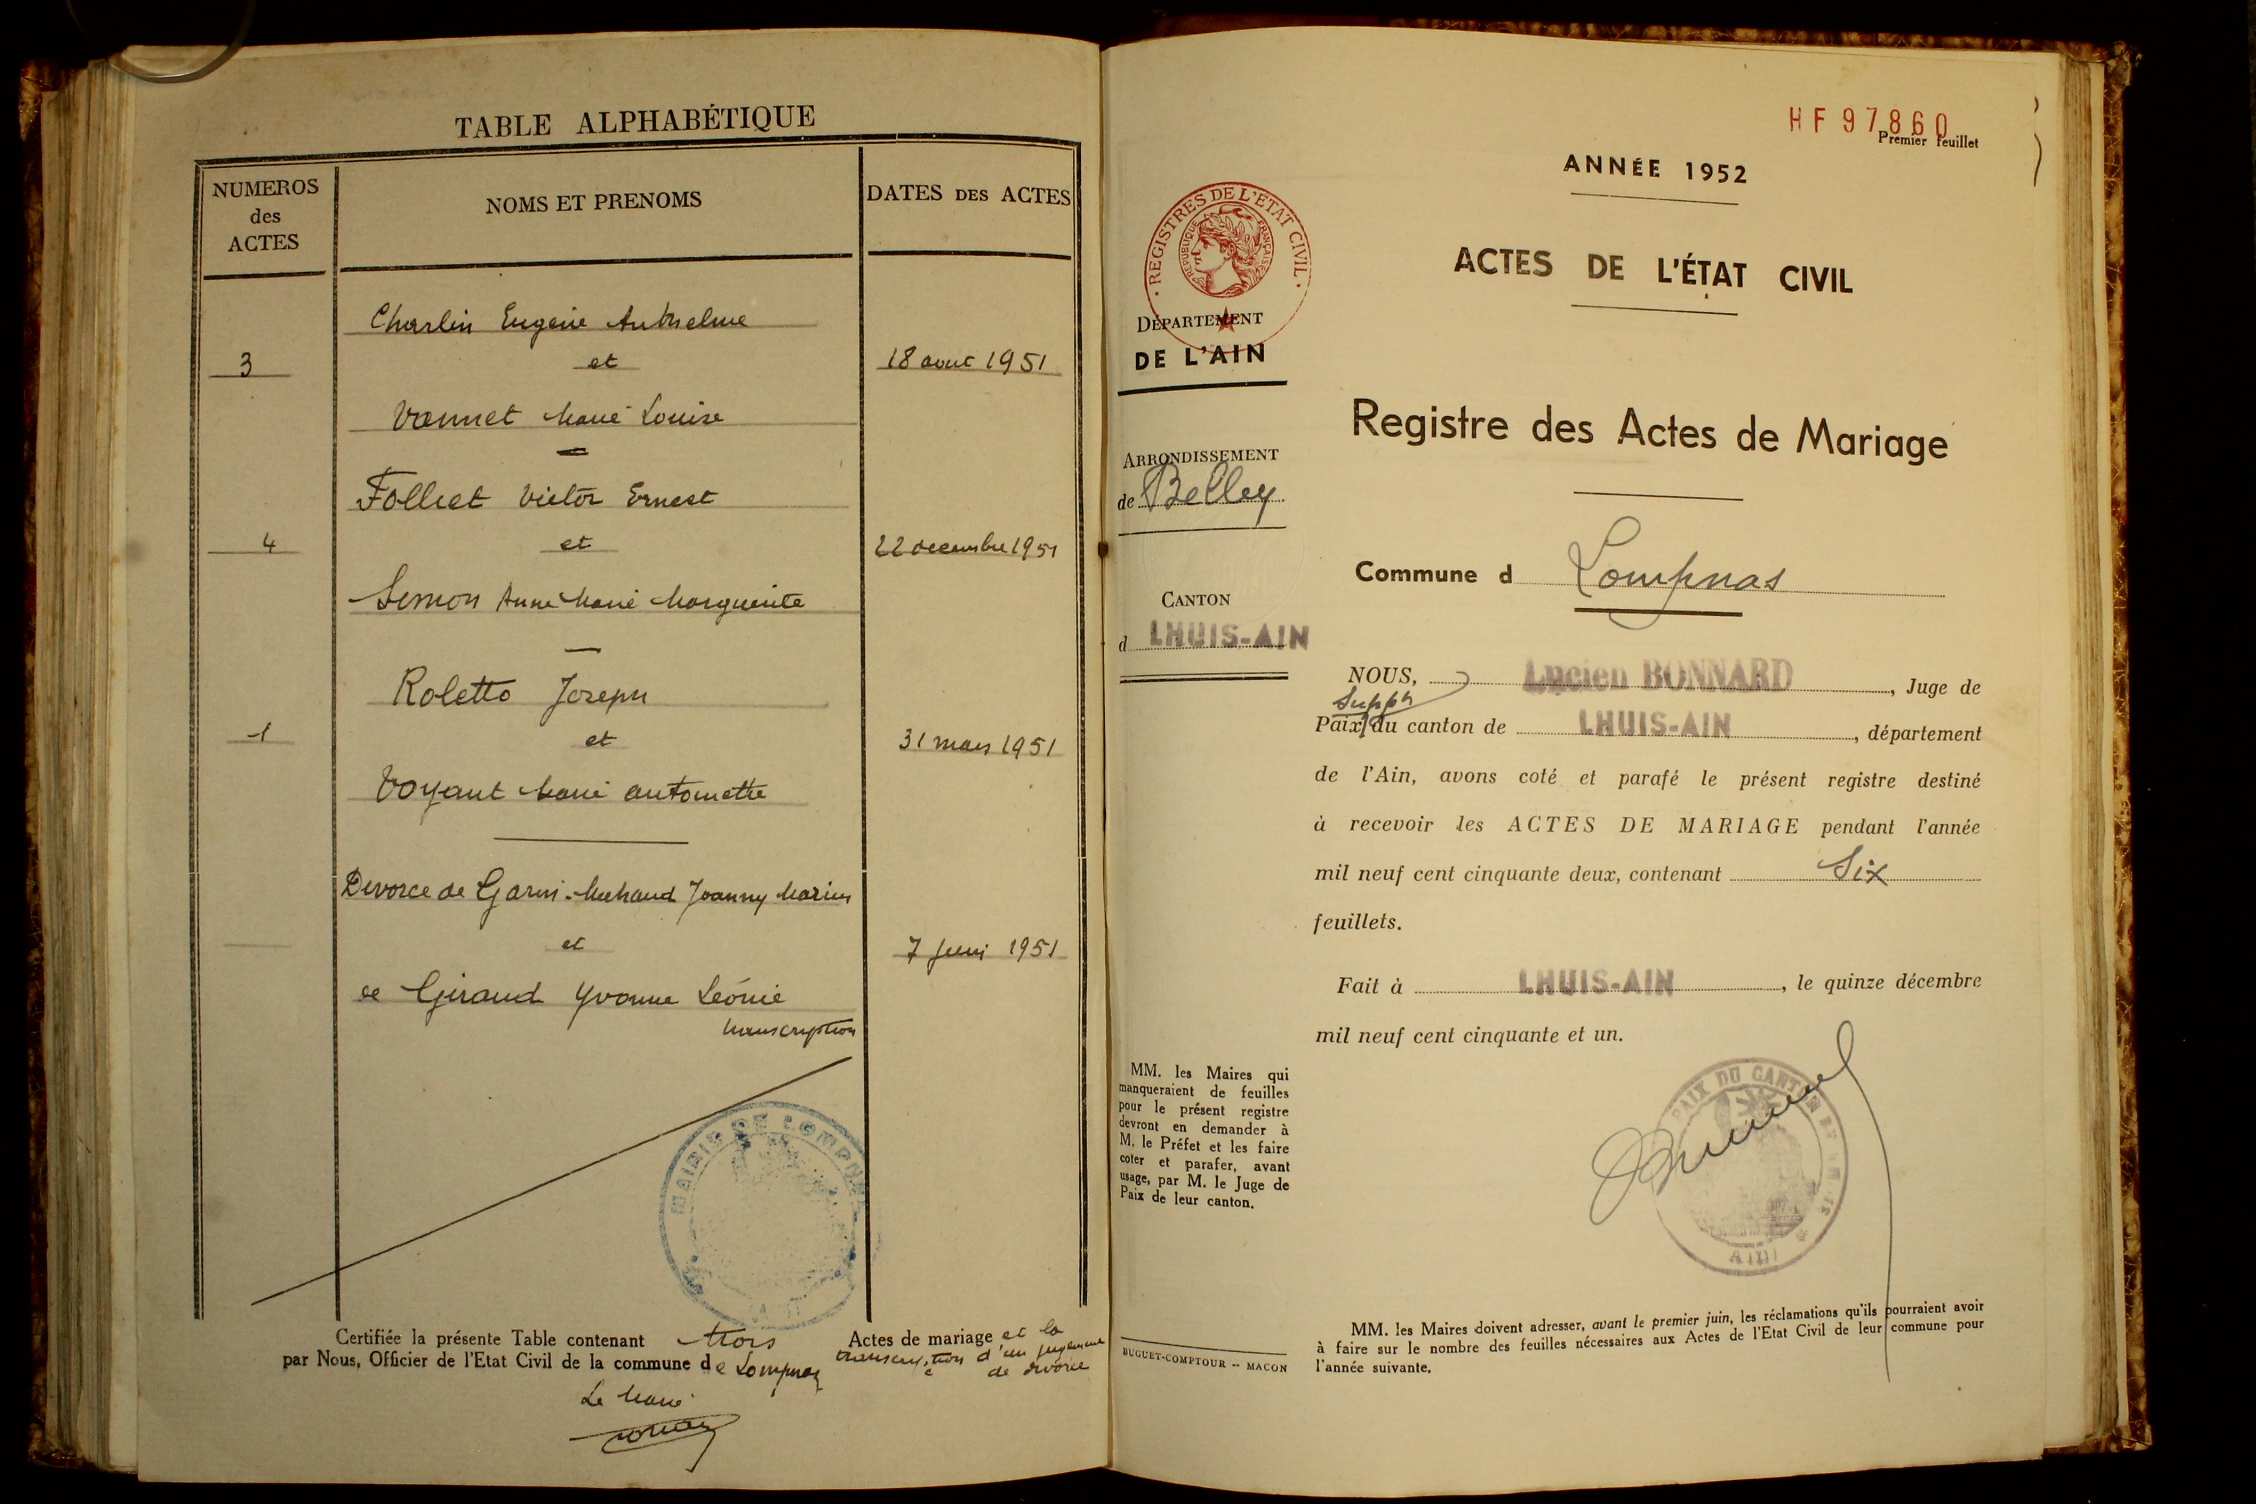 TABLE ALPHABÉTIQUE
NUMEROS
des
ACTES
NOMS ET PRENOMS
DATES DES ACTES
Charlin Eugène Anthelme
3
et
18 aout 1951
Vannet Marie Louise
Folliet Victor Ernest
4
et
22 decembre 1951
Simon Anne Marie Marguerite
Roletto Joseph
1
et
31 mars 1951
Voyant Marie antoinette
Divorce de Garin-Michaud Joanny Marius
et
7 Juin 1951
de Giraud Yvonne Léonie
transcription
MAIRIE DE LOMPNAS
Certifiée la présente Table contenant trois Actes de mariage et la
transcription d'un jugement
par Nous, Officier de l'Etat Civil de la commune de Lompnas
de divorce
Le Maire
HF 97860
Premier feuillet
ANNÉE 1952
ACTES DE L'ÉTAT CIVIL
· REGISTRES DE L'ETAT CIVIL ·
REPUBLIQUE FRANÇAISE
DÉPARTEMENT
DE L'AIN
Registre des Actes de Mariage
ARRONDISSEMENT
de Belley
Commune d Lompnas
CANTON
d LHUIS-AIN
NOUS, Lucien BONNARD, Juge de
Suppt
Paix du canton de LHUIS-AIN, département
de l'Ain, avons coté et parafé le présent registre destiné
à recevoir les ACTES DE MARIAGE pendant l'année
mil neuf cent cinquante deux, contenant Six
feuillets.
Fait à LHUIS-AIN, le quinze décembre
mil neuf cent cinquante et un.
PAIX DU CANTON DE LHUIS
AIN
MM. les Maires qui
manqueraient de feuilles
pour le présent registre
devront en demander à
M. le Préfet et les faire
coter et parafer, avant
usage, par M. le Juge de
Paix de leur canton.
BUGUET-COMPTOUR -- MACON
MM. les Maires doivent adresser, avant le premier juin, les réclamations qu'ils pourraient avoir
à faire sur le nombre des feuilles nécessaires aux Actes de l'Etat Civil de leur commune pour
l'année suivante.